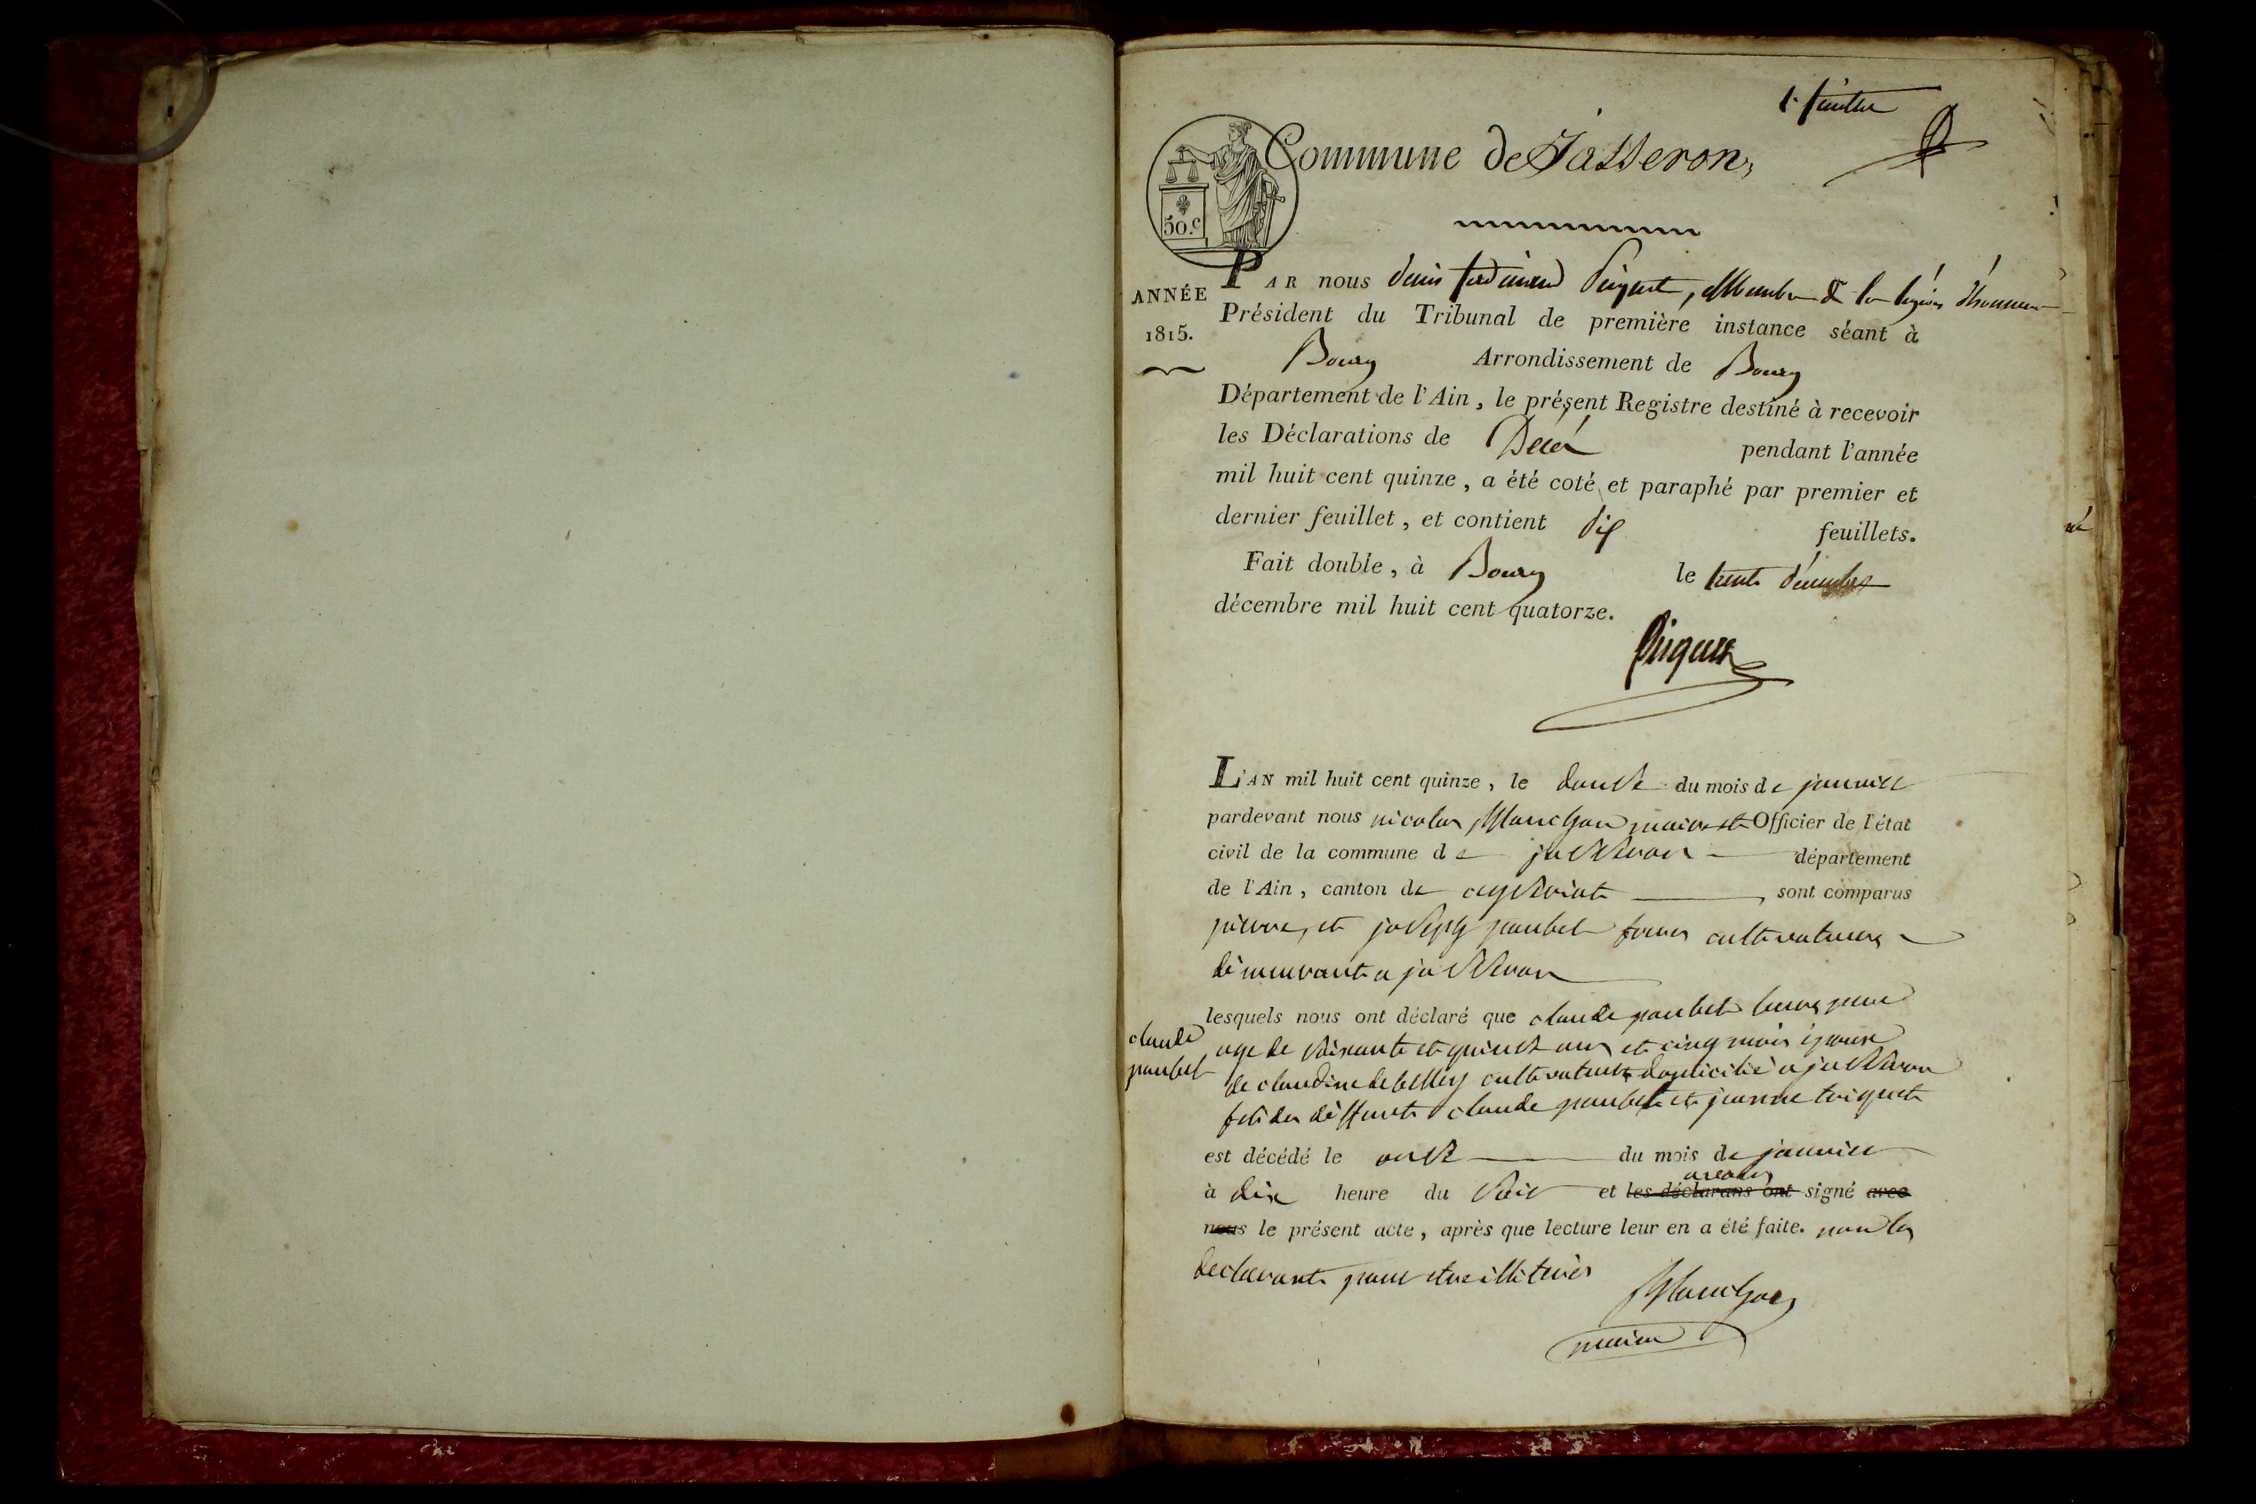 1.er feuillet
Commune de Jasseron,
50.c
ANNÉE
1815.
PAR nous denis ferdinand Piquet, Membre de la légion d'honneur
Président du Tribunal de première instance séant à
Bourg Arrondissement de Bourg
Département de l'Ain, le présent Registre destiné à recevoir
les Déclarations de Décès pendant l'année
mil huit cent quinze, a été coté et paraphé par premier et
dernier feuillet, et contient dix feuillets.
Fait double, à Bourg le trente décembre
décembre mil huit cent quatorze.
L'AN mil huit cent quinze, le douse du mois de janvier
pardevant nous nicolas Manchon maire et Officier de l'état
civil de la commune de jasseron département
de l'Ain, canton de ceyseriat sont comparus
pierre, et joseph paubel freres cultivateurs
démeurant a jasseron
lesquels nous ont déclaré que claude paubel leurs pere
claude
paubel
age de soixante et quinse ans et cinq mois époux
de claudine debelley cultivateur domicilié a jasseron
fils des déffunts claude paubel et jeanne triquet
est décédé le onse du mois de janvier
à dix heure du soir et les déclarans ont avons signé avec
nous le présent acte, après que lecture leur en a été faite. non les
declarants pour etre illiterés
Manchon
maire